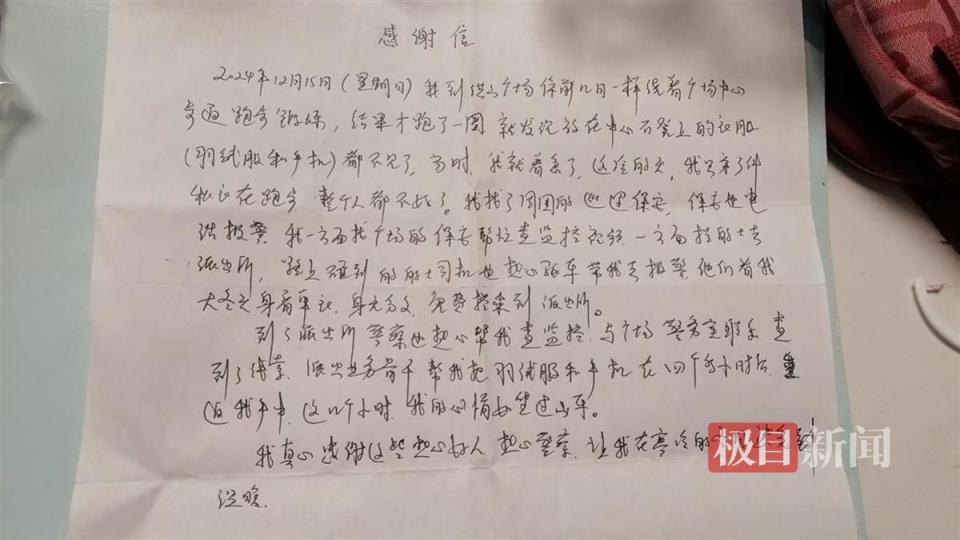 感谢信
2024年12月15日(星期日)我到洪山广场像前几日一样绕着广场中心
步道跑步锻炼，结果才跑了一圈就发现放在中心石凳上的衣服
(羽绒服和手机)都不见了，当时，我就着急了，这冷的天，我只穿了件
秋衣在跑步 整个人都不好了。我找了周围的巡逻保安，保安也电
话报警 我一方面找广场的保安帮忙查监控视频 一方面拦的士去
派出所，路上碰到的的士司机也热心驱车带我去报警 他们看我
大冬天身着单衣，身无分文，免费搭乘到派出所。
到了派出所 警察也热心帮我查监控，与广场警务室联系 查
到了线索，派出业务骨干帮我把羽绒服和手机在四个多小时后
返我手中，这几个小时，我的心情如坐过山车。
我真心感谢这些热心好人 热心警察，让我在寒冷的
温暖。
极目新闻